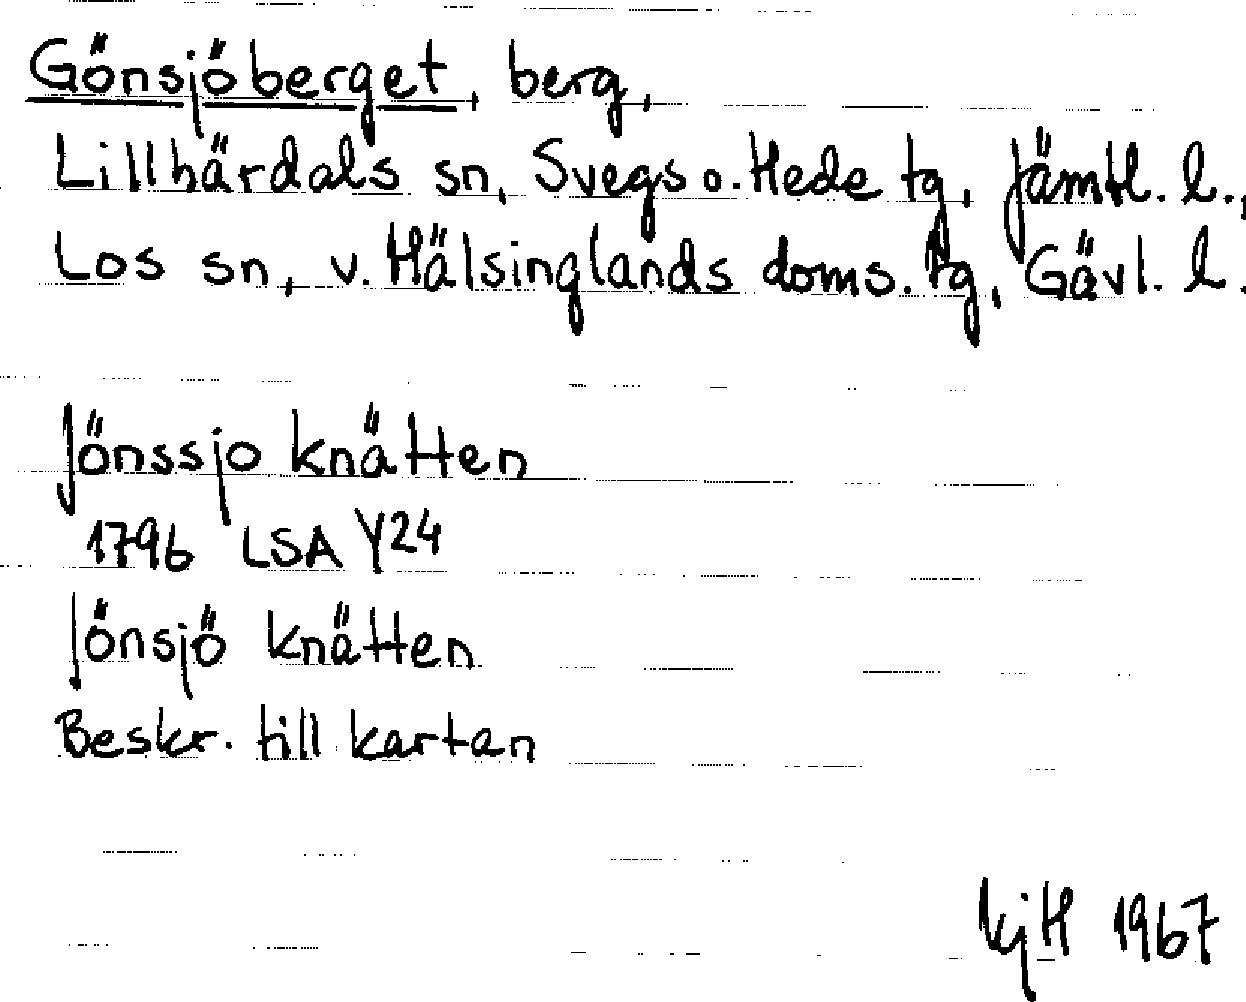 Gönsjöberget, berg,
Lillhärdals sn, Svegs o. Hede tg, Jämtl. l.,
Los sn, v. Hälsinglands doms. tg, Gävl. l.
Jönssjo knätten
1796 LSA Y24
Jönsjö knätten
Beskr. till kartan
KjH 1967